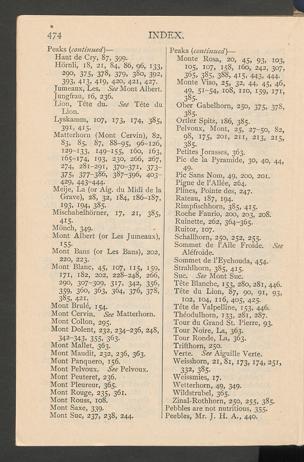 474 INDEX.
Peaks (continued)—
Haut de Cry, 87, 399.
Hörnli, 18, 21, 84, 86, 96, 133,
290, 375, 378, 379, 380, 392,
393, 413, 419, 420, 421, 427.
Jumeaux, Les. See Mont Albert.
Jungfrau, 16, 236.
Lion, Tête du. See Tête du
Lion.
Lyskamm, 107, 173, 174, 385,
391, 415.
Matterhorn (Mont Cervin), 82,
83, 85, 87, 88-95, 96-126,
129-133, 149-155, 160, 163,
165-174, 193, 230, 266, 267,
274, 281-291, 370-371, 373-
375, 377-386, 387-396, 403-
429, 443-444.
Meije, La (or Aig. du Midi de la
Grave), 28, 32, 184, 186-187,
193, 194, 385.
Mischabelhörner, 17, 21, 385,
415.
Mönch, 349.
Mont Albert (or Les Jumeaux),
155.
Mont Bans (or Les Bans), 202,
220, 223.
Mont Blanc, 45, 107, 115, 159,
171, 182, 202, 228-248, 266,
290, 307-309, 317, 342, 356,
359, 360, 363, 364, 376, 378,
385, 421.
Mont Brulé, 154.
Mont Cervin. See Matterhorn.
Mont Collon, 295.
Mont Dolent, 232, 234-236, 248,
342-343, 355, 363.
Mont Mallet, 363.
Mont Maudit, 232, 236, 363.
Mont Panquero, 156.
Mont Pelvoux. See Pelvoux.
Mont Peuteret, 236.
Mont Pleureur, 365.
Mont Rouge, 235, 361.
Mont Rouss, 108.
Mont Saxe, 339.
Mont Suc, 237, 238, 244.
Peaks (continued)—
Monte Rosa, 20, 45, 93, 103,
105, 107, 158, 160, 242, 307,
365, 385, 388, 415, 443, 444.
Monte Viso, 25, 32, 44, 45, 46,
49, 51-54, 108, 110, 159, 171,
385.
Ober Gabelhorn, 250, 375, 378,
385.
Ortler Spitz, 186, 385.
Pelvoux, Mont, 25, 27-50, 82,
98, 175, 201, 211, 213, 215,
385.
Petites Jorasses, 363.
Pic de la Pyramide, 30, 40, 44,
49.
Pic Sans Nom, 49, 200, 201.
Pigne de l'Allée, 264.
Plines, Pointe des, 247.
Rateau, 187, 194.
Rimpfischhorn, 385, 415.
Roche Faurio, 200, 203, 208.
Ruinette, 262, 364-365.
Ruitor, 107.
Schallhorn, 250, 252, 255.
Sommet de l'Aile Froide. See
Aléfroide.
Sommet de l'Eychouda, 454.
Strahlhorn, 385, 415.
Suc. See Mont Suc.
Tête Blanche, 153, 280, 281, 446.
Tête du Lion, 87, 90, 91, 93,
102, 104, 116, 405, 425.
Tête de Valpelline, 153, 446.
Théodulhorn, 133, 281, 287.
Tour du Grand St. Pierre, 93.
Tour Noire, La, 363.
Tour Ronde, La, 363.
Trifthorn, 250.
Verte. See Aiguille Verte.
Weisshorn, 21, 81, 173, 174, 251,
332, 385.
Weissmies, 17.
Wetterhorn, 49, 349.
Wildstrubel, 365.
Zinal-Rothhorn, 250, 255, 385.
Pebbles are not nutritious, 355.
Peebles, Mr. J. H. A., 440.